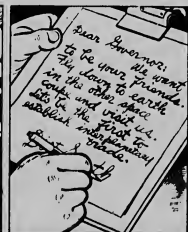 Dear Governor:
We want
to be your friends.
Fly down to earth
in the outer space
coupe and visit us.
Let's be the first to
establish interplanetary
trade.